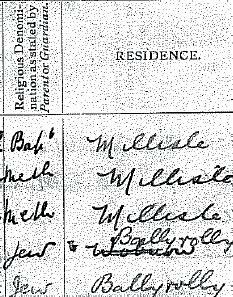 Religious Denomi-
nation as stated by
Parent or Guardian.
RESIDENCE.
Bap Millisle
Meth Millisle
Meth Millisle
Ballyrolly
Jew Woburn
Jew Ballyrolly